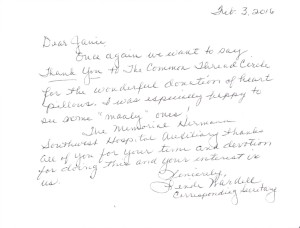 Feb. 3, 2016
Dear Janie,
Once again we want to say
Thank You to The Common Thread Circle
for the wonderful donation of heart
pillows. I was especially happy to
see some "manly" ones!
The Memorial Hermann
Southwest Hospital Auxiliary thanks
all of you for your time and devotion
for doing this and your interest in
us.
Sincerely,
Wardell
Corresponding Secretary